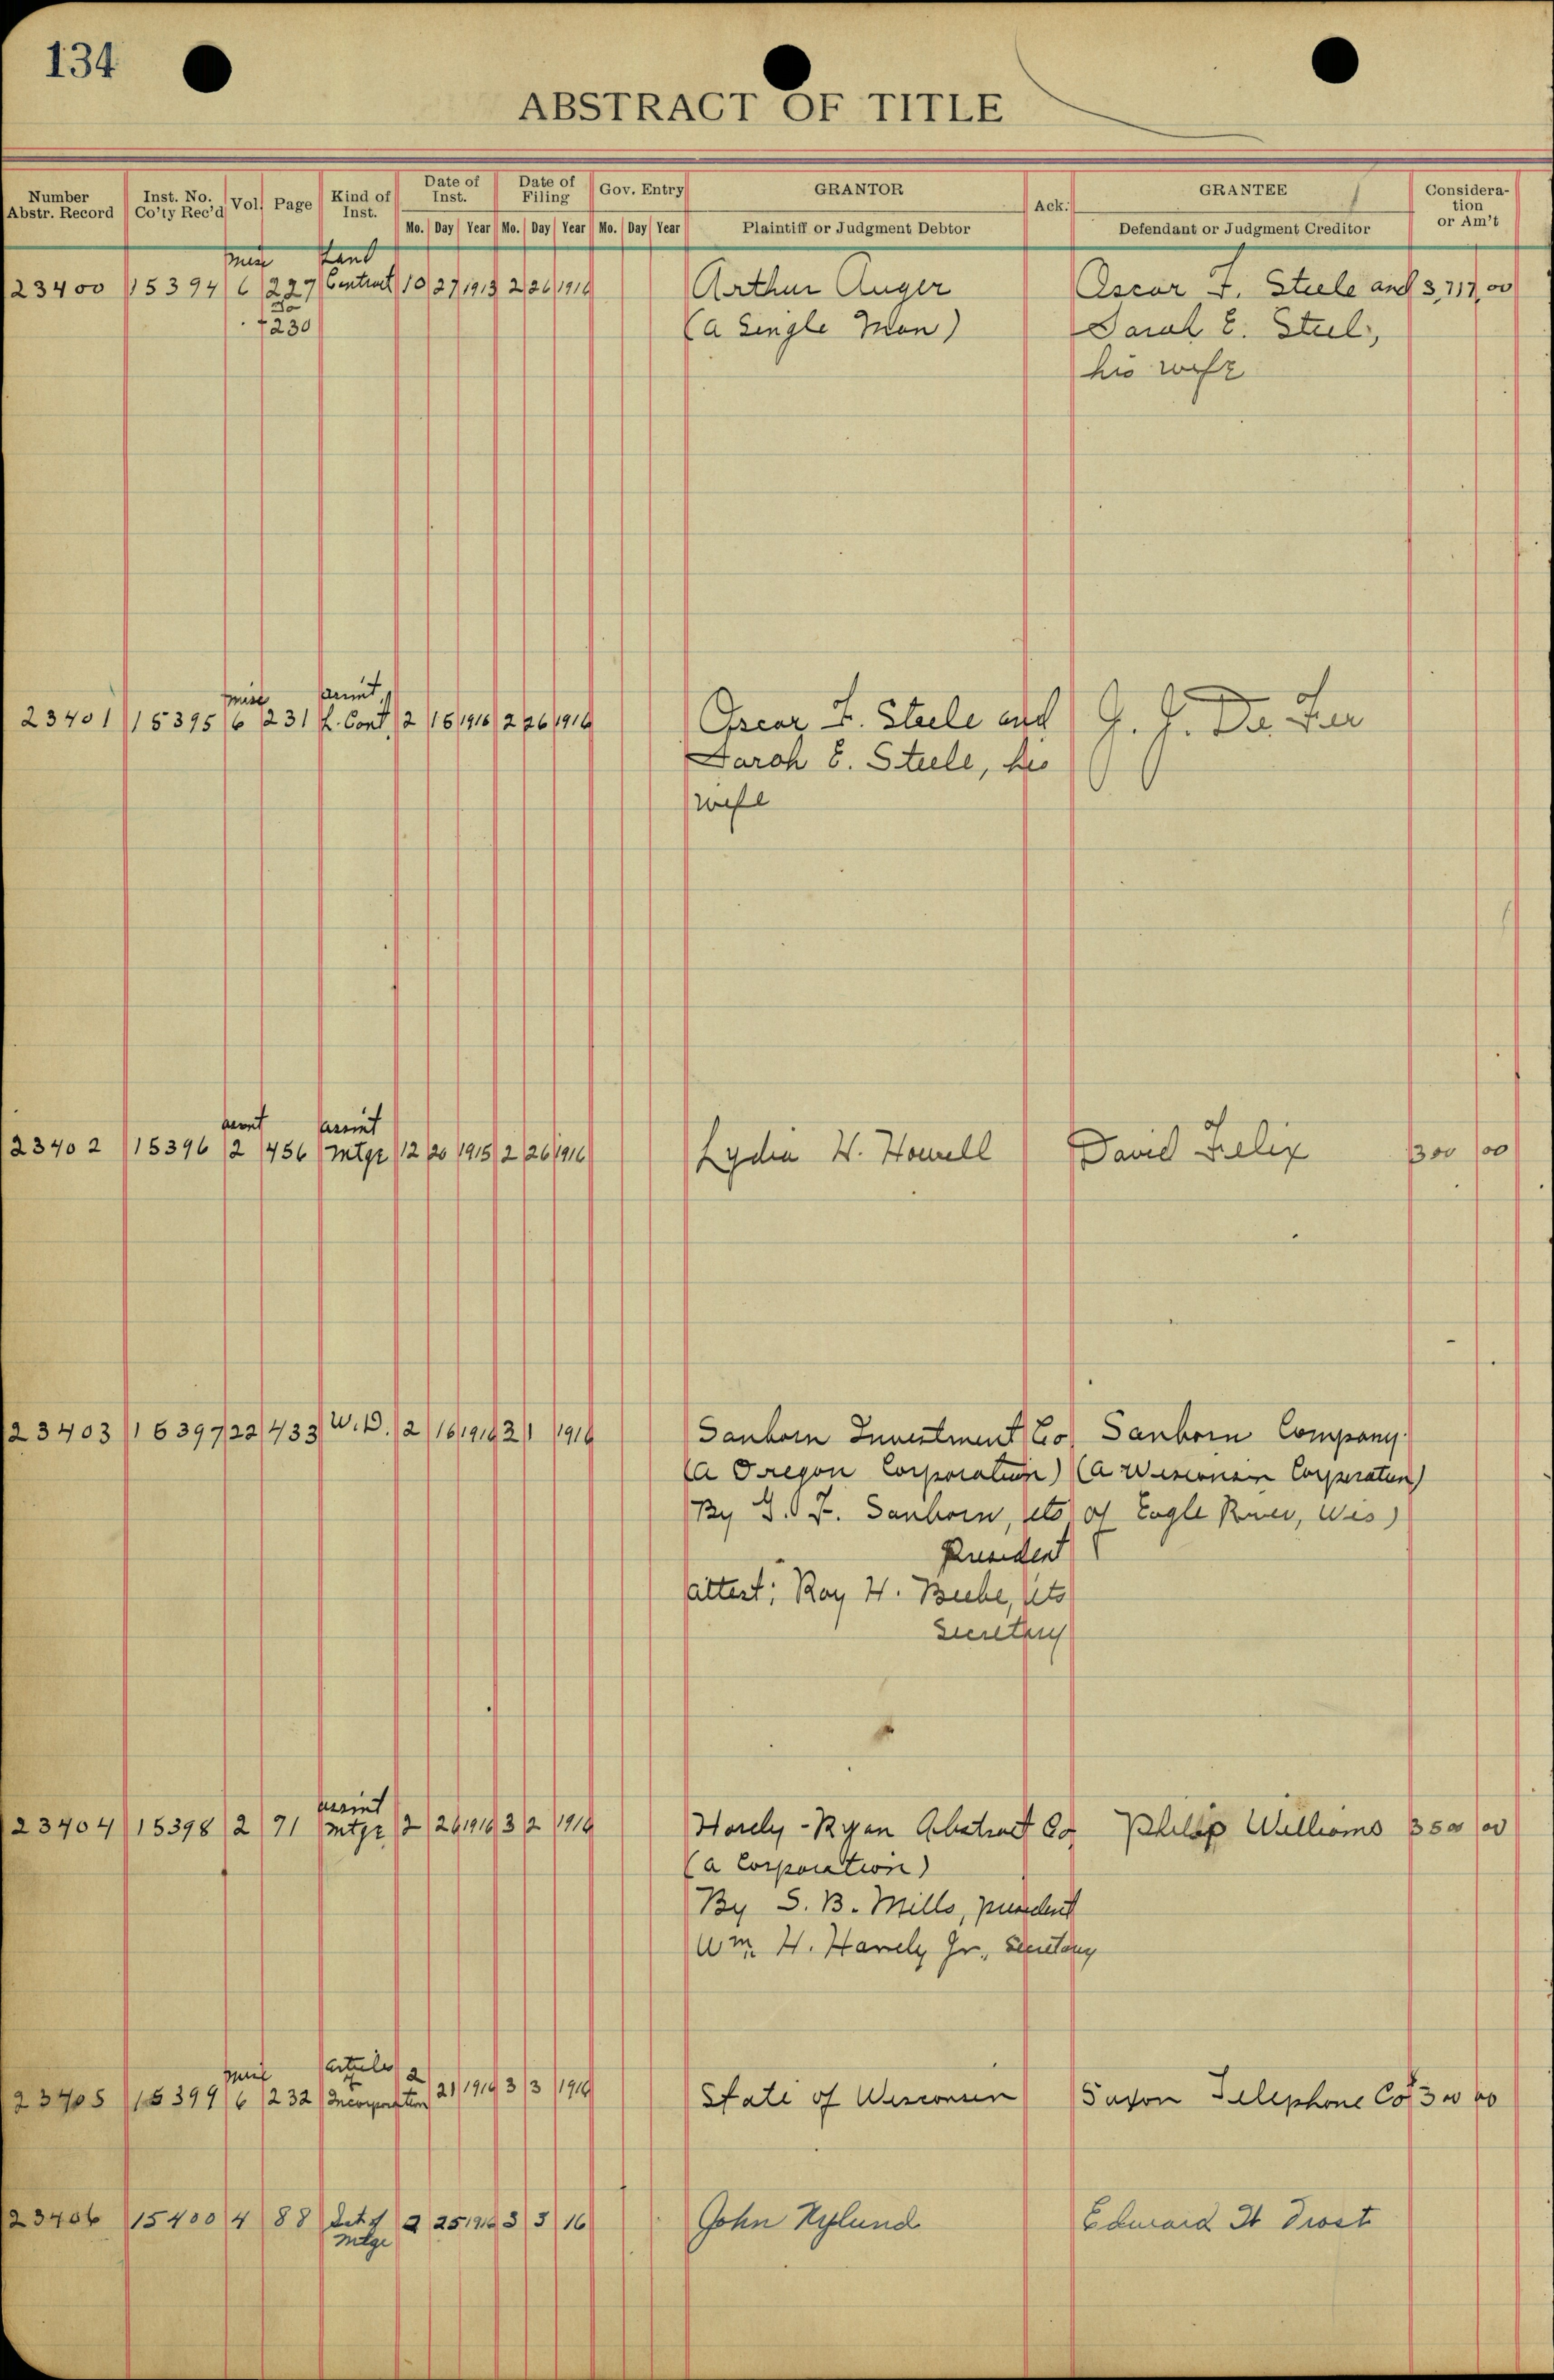 134
ABSTRACT OF TITLE
Number Abstr. Record Inst. No. Co'ty Rec'd Vol. Page Kind of Inst. Date of Inst. Date of Filing Gov. Entry GRANTOR Ack. GRANTEE Considera-tion or Am't
Mo. Day Year Mo. Day Year Mo. Day Year Plaintiff or Judgment Debtor Defendant or Judgment Creditor
Misc Land
23400 15394 6 229 Contract 10 27 1913 2 26 1916 Arthur Auger Oscar F. Steele and 3,717.00
To
+ 230 (a Single Man) Sarah E. Steel,
his wife
Misc assmt.
23401 15395 6 231 L. Cont. 2 15 1916 2 26 1916 Oscar F. Steele and G. J. De Fer
Sarah E. Steele, his
wife
assmt assmt
23402 15396 2 456 Mtge 12 20 1915 2 26 1916 Lydia W. Howell David Felix 300 00
23403 15397 22 433 W.D. 2 16 1916 3 1 1916 Sanborn Investment Co. Sanborn Company
(a Oregon Corporation) (a Wisconsin Corporation)
By J. F. Sanborn, its of Eagle River, Wis)
President
attest: Roy H. Beebe, its
Secretary
assmt
23404 15398 2 71 Mtge 2 26 1916 3 2 1916 Hanely-Ryan Abstract Co. Philip Williams 350 00
(a Corporation)
By S. B. Mills, president
Wm. H. Hanely Jr., Secretary
Misc Articles of
23405 15399 6 232 Incorporation 2 21 1916 3 3 1916 State of Wisconsin Saxon Telephone Co. 300 00
23406 15400 4 88 Sat of 2 25 1916 3 3 16 John Nylund Edward H Trost
Mtge